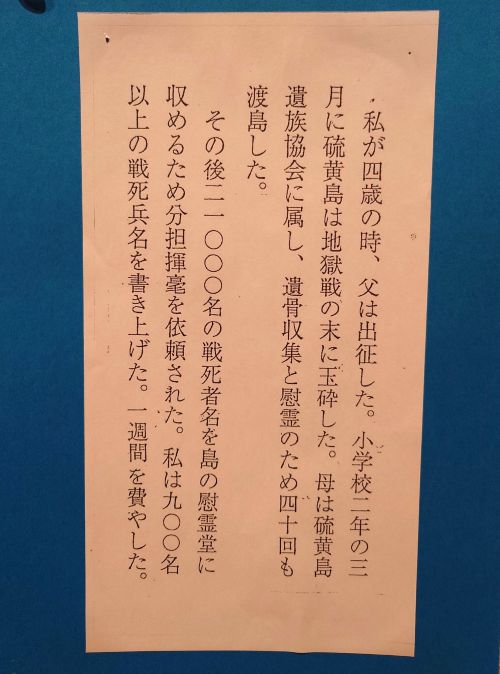 私が四歳の時、父は出征した。小学校二年の三
月に硫黄島は地獄戦の末に玉砕した。母は硫黄島
遺族協会に属し、遺骨収集と慰霊のため四十回も
渡島した。
その後二一〇〇〇名の戦死者名を島の慰霊堂に
収めるため分担揮毫を依頼された。私は九〇〇名
以上の戦死兵名を書き上げた。一週間を費やした。